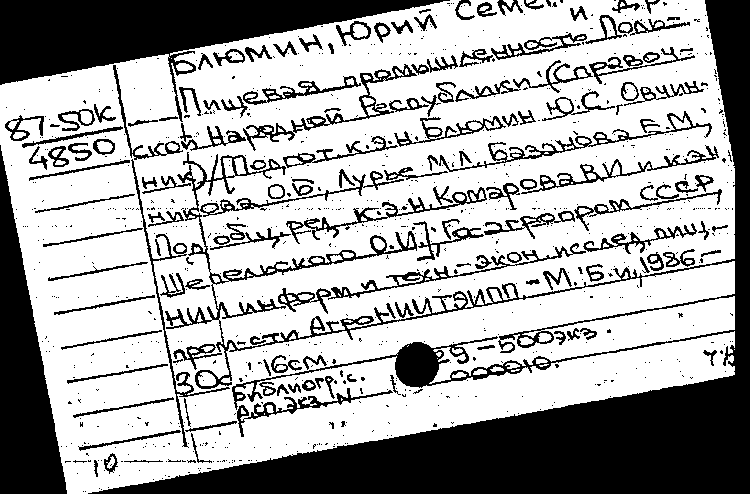 Блюмин, Юрий Семе
и др.
87-50К
4850
Пищевая промышленность Поль-
ской Народной Республики: (Справоч-
ник)/[Подгот. к.э.н. Блюмин Ю.С., Овчин-
никова О.Б., Лурье М.Л., Базанова Е.М.;
Под общ. ред. к.э.н. Комарова В.И и к.э.н.
О.И.]; Госагропром СССР,
НИИ информ. и техн.-экон. исслед. пищ.
пром-сти АгроНИИТЭИПП.-М.: Б.и., 1986.-
30с. 16см.
29.-500экз.
Библиогр.: с.
000010.
Дсп. экз. N
10